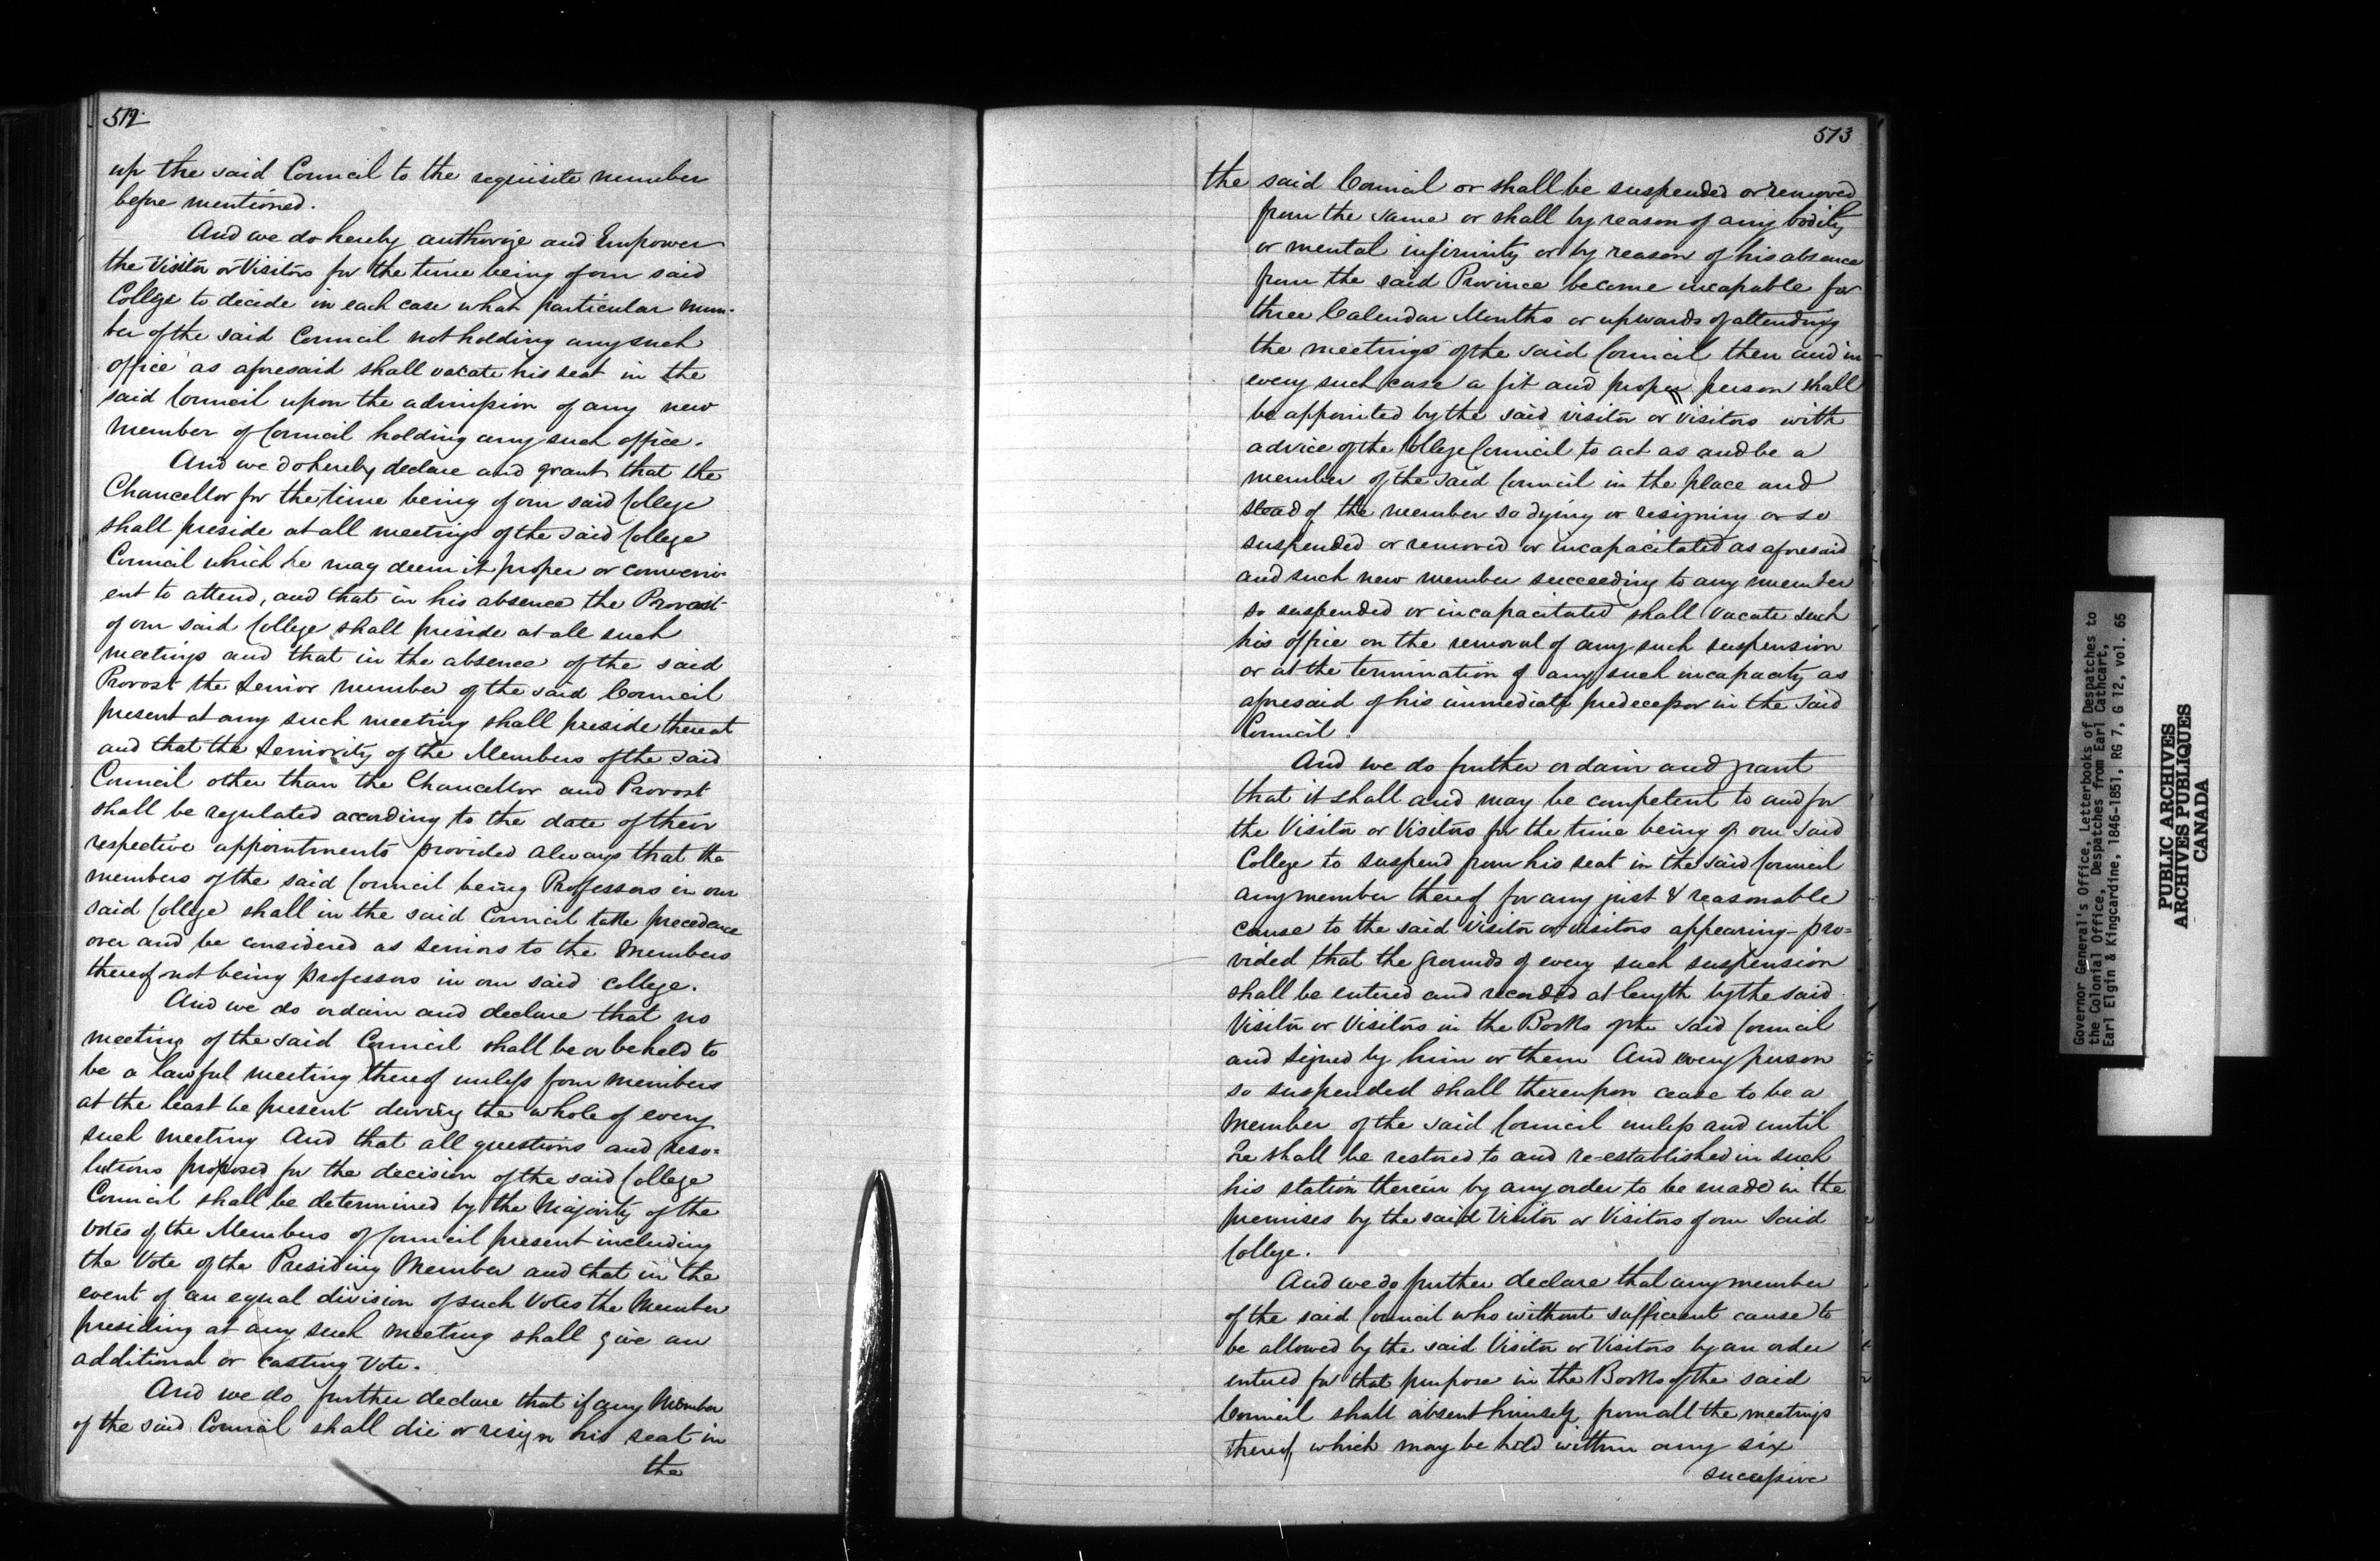 512.
up the said Council to the requisite number
before mentioned.
And we do hereby authorize and Empower
the Visitor or Visitors for the time being of our said
College to decide in each case what particular mem-
ber of the said Council not holding any such
office as aforesaid shall vacate his seat in the
said Council upon the admission of any new
member of Council holding any such office.
And we do hereby declare and grant that the
Chancellor for the time being of our said College
shall preside at all meetings of the said College
Council which he may deem it proper or conveni-
ent to attend, and that in his absence the Provost
of our said College shall preside at all such
meetings and that in the absence of the said
Provost the Senior member of the said Council
present at any such meeting shall preside thereat
and that the Seniority of the Members of the said
Council other than the Chancellor and Provost
shall be regulated according to the date of their
respective appointments provided always that the
members of the said Council being Professors in our
said College shall in the said Council take precedence
over and be considered as seniors to the Members
thereof not being Professors in our said College.
And we do ordain and declare that no
meeting of the said Council shall be or be held to
be a lawful meeting thereof unless four members
at the least be present during the whole of every
such meeting And that all questions and reso-
lutions proposed for the decision of the said College
Council shall be determined by the Majority of the
votes of the Members of Council present including
the Vote of the Presiding Member and that in the
event of an equal division of such Votes the Member
presiding at any such meeting shall give an
additional or casting Vote.
And we do further declare that if any Member
of the said Council shall die or resign his seat in
the
513
the said Council or shall be suspended or removed
from the same or shall by reason of any bodily
or mental infirmity or by reason of his absence
from the said Province become incapable for
three Calendar Months or upwards of attending
the meetings of the said Council then and in
every such case a fit and proper person shall
be appointed by the said visitor or visitors with
advice of the College Council to act as and be a
member of the said Council in the place and
stead of the member so dying or resigning or so
suspended or removed or incapacitated as aforesaid
and such new member succeeding to any member
so suspended or incapacitated shall vacate such
his office on the removal of any such suspension
or at the termination of any such incapacity as
aforesaid of his immediate predecessor in the said
Council.
And we do further ordain and grant
that it shall and may be competent to and for
the Visitor or Visitors for the time being of our said
College to suspend from his seat in the said Council
any member thereof for any just & reasonable
cause to the said Visitor or visitors appearing - pro=
vided that the grounds of every such suspension
shall be entered and recorded at length by the said
Visitor or Visitors in the Books of the said Council
and signed by him or them And every person
so suspended shall thereupon cease to be a
Member of the said Council unless and until
he shall be restored to and re-established in such
his station therein by any order to be made in the
premises by the said Visitor or Visitors of our said
College.
And we do further declare that any member
of the said Council who without sufficient cause to
be allowed by the said Visitor or Visitors by an order
entered for that purpose in the Books of the said
Council shall absent himself from all the meetings
thereof, which may be held within any six
successive
Governor General's Office, Letterbooks of Despatches to
the Colonial Office, Despatches from Earl Cathcart,
Earl Elgin & Kingcardine, 1846-1851, RG 7, G 12, vol. 65
PUBLIC ARCHIVES
ARCHIVES PUBLIQUES
CANADA